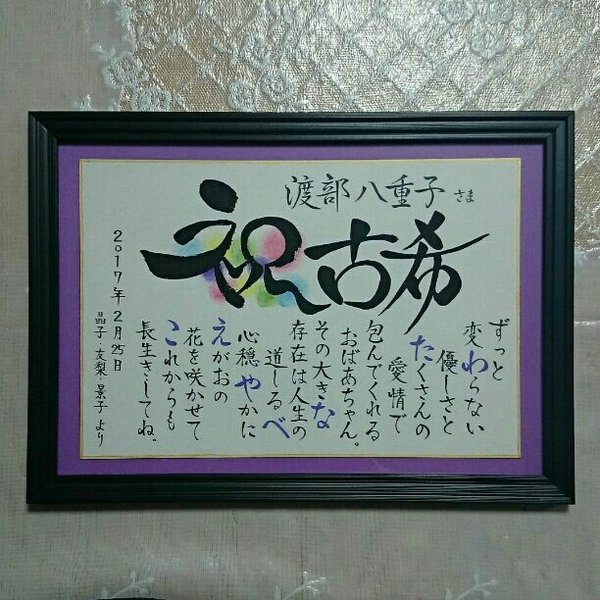 渡部八重子 さま
祝古希
ずっと
変わらない
優しさと
たくさんの
愛情で
包んでくれる
おばあちゃん。
その大きな
存在は人生の
道しるべ
心穏やかに
えがおの
花を咲かせて
これからも
長生きしてね。
2017年2月25日
晶子・友梨・景子より